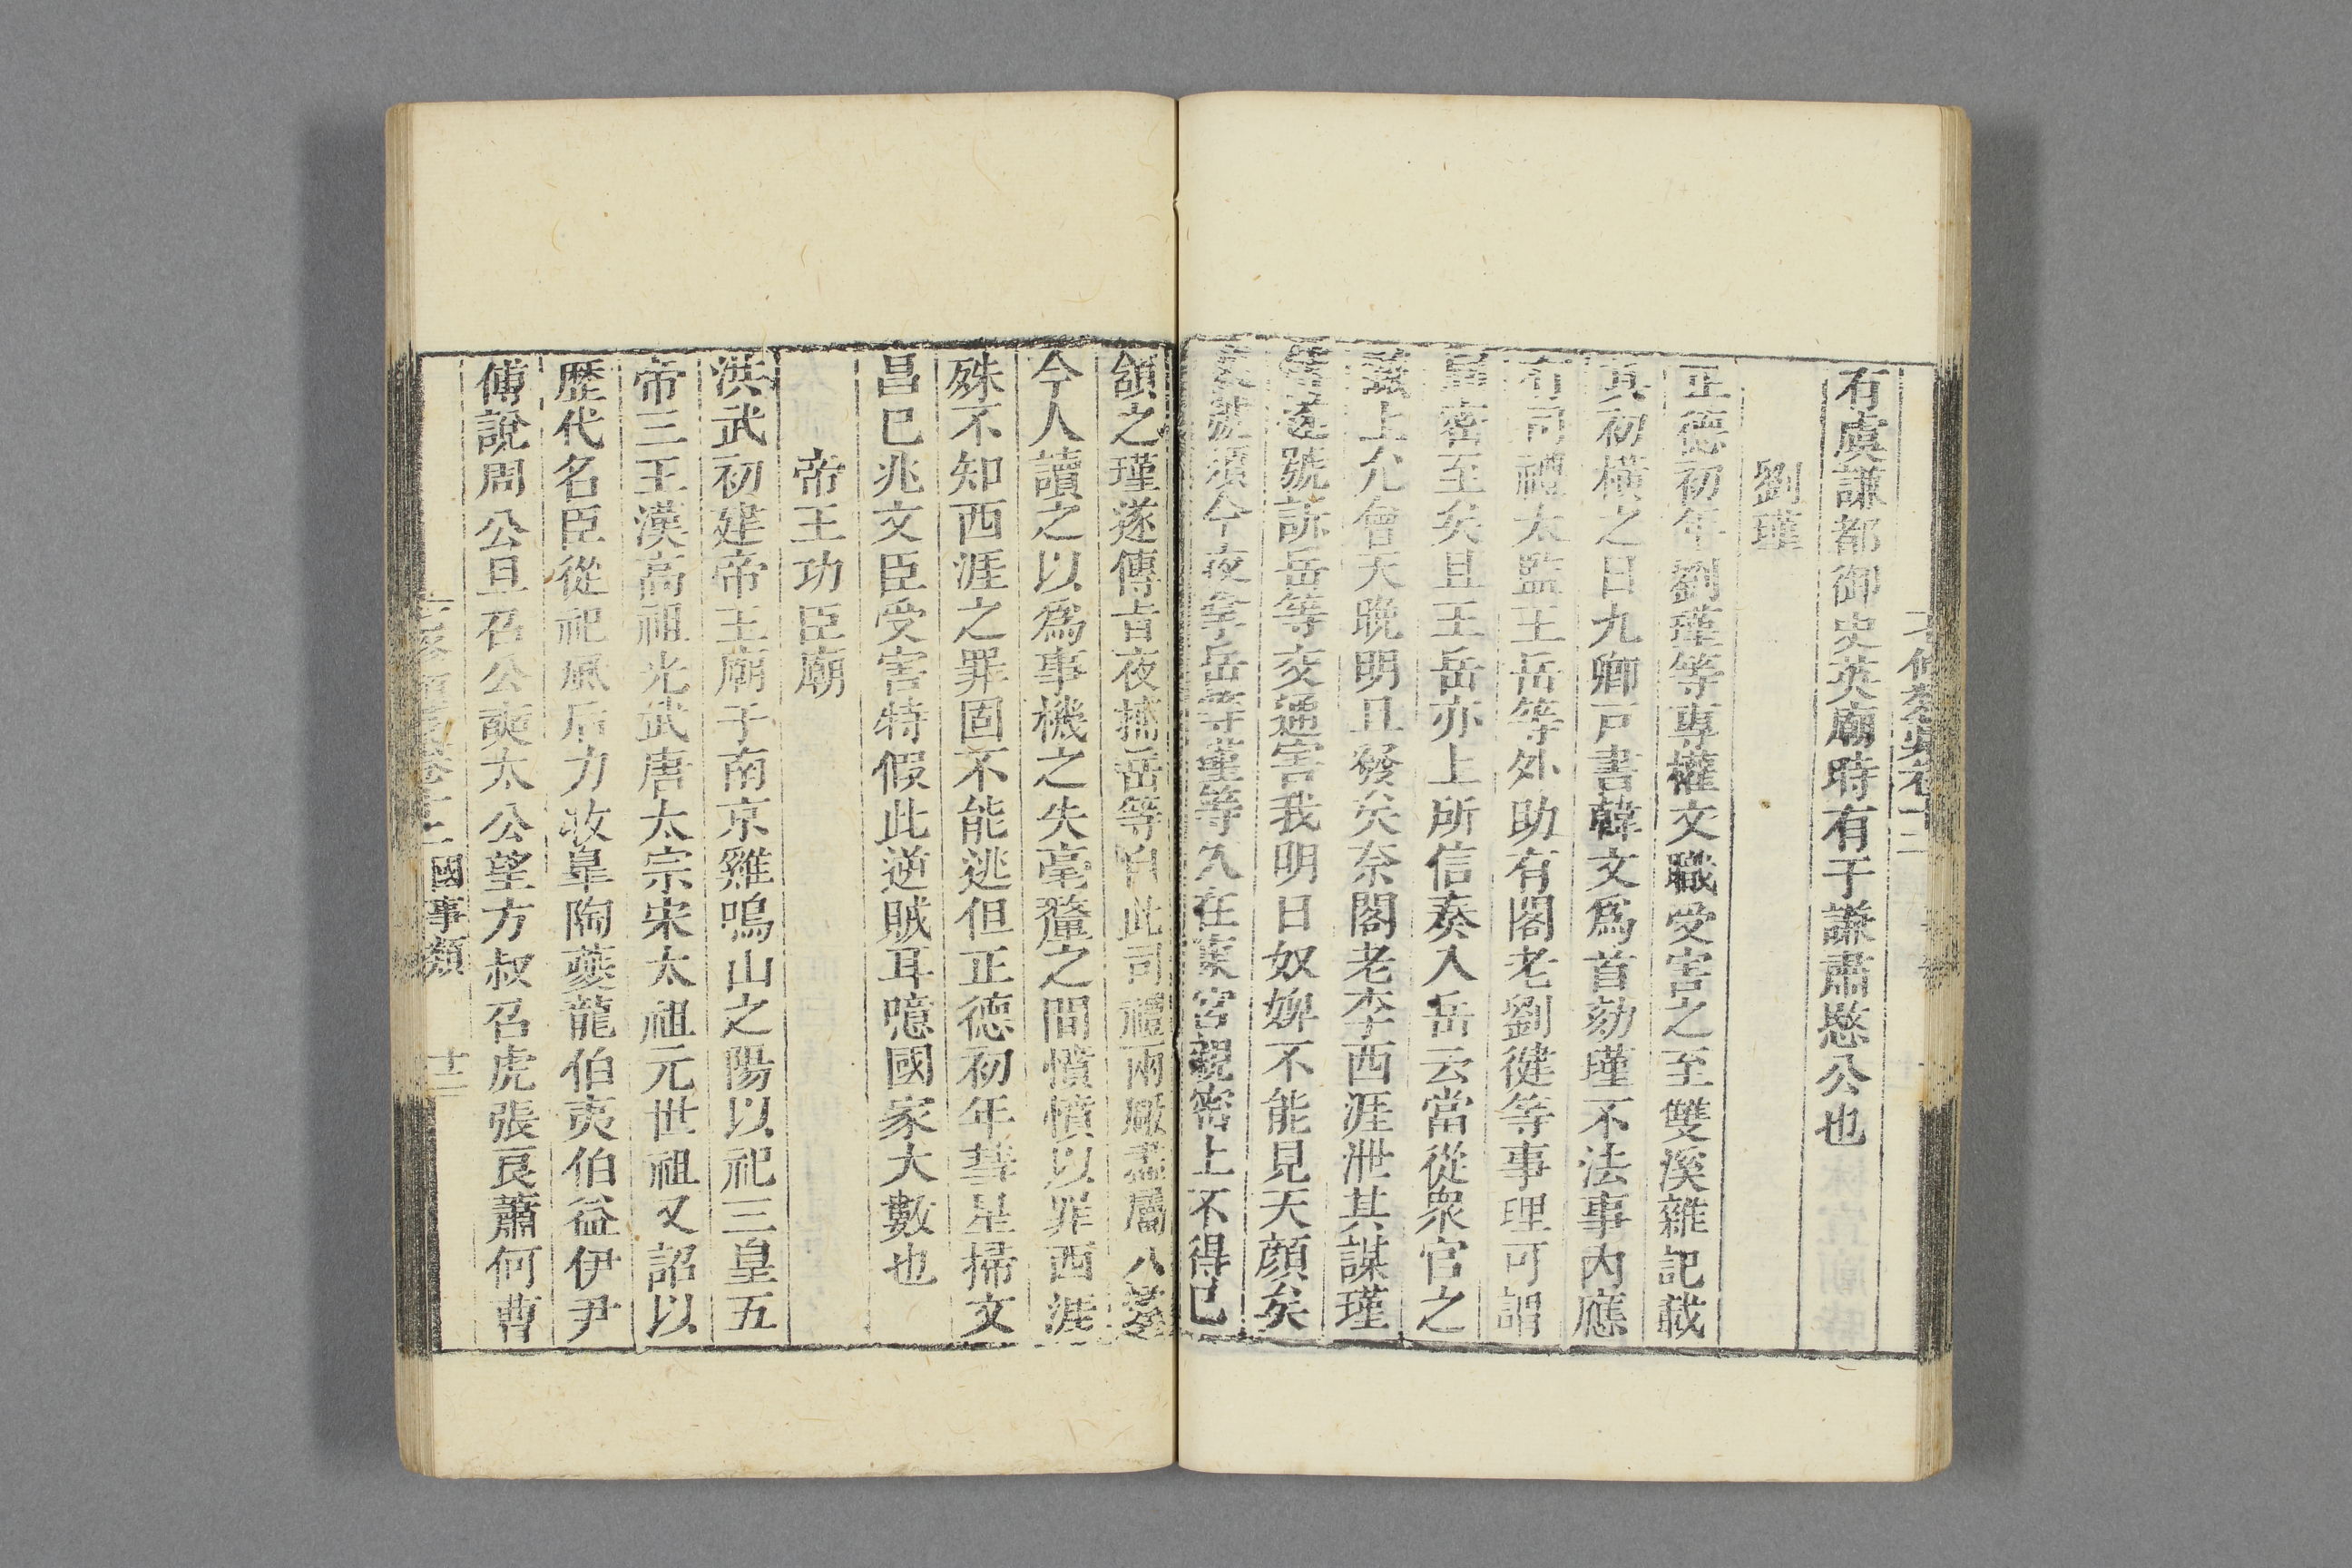 有虞謙都御史英廟時有于謙肅愍公也
劉瑾
正德初年劉瑾等專權文職受害之至雙溪雜記載
其初橫之日九卿戶書韓文爲首劾瑾不法事內應
有司禮太監王岳等外助有閣老劉健等事理可謂
密至矣且王岳亦上所信奏入岳云當從衆官之
議上允會天晚明旦發矣奈閣老李西涯泄其謀瑾
等遶號訴岳等交通害我明日奴婢不能見天顏矣
須今夜拿岳等瑾等入在宮親密上不得已
頷之瑾遂傳旨夜捕岳等自此司禮兩廠盡屬八
今人讀之以爲事機之失毫釐之間憤憤以罪西涯
殊不知西涯之罪固不能逃但正德初年彗星掃文
昌已兆文臣受害特假此逆賊耳噫國家大數也
帝王功臣廟
洪武初建帝王廟于南京雞鳴山之陽以祀三皇五
帝三王漢高祖光武唐太宗宋太祖元世祖又詔以
歷代名臣從祀風后力牧皐陶夔龍伯夷伯益伊尹
傅說周公旦召公奭太公望方叔召虎張良蕭何曹
國事類